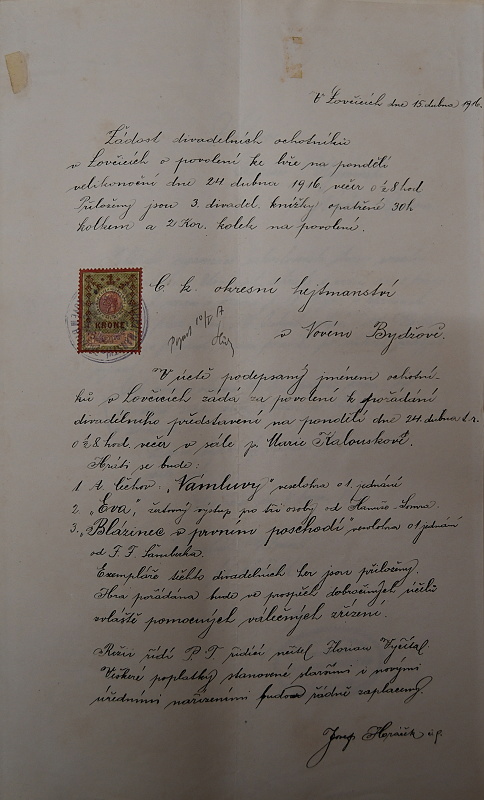 V Lovčicích dne 15. dubna 1916.
Žádost divadelních ochotníků
v Lovčicích o povolení ke hře na pondělí
velikonoční dne 24. dubna 1916. večer o ½8 hod.
Přiloženy jsou 3. divadel. knížky opatřené 30h
kolkem a 2 Kor. kolek na povolení.
1
KRONE
C. k. okresní hejtmanství
v Novém Bydžově.
V úctě podepsaný jménem ochotní-
ků v Lovčicích žádá za povolení k pořádání
divadelního představení na pondělí dne 24. dubna t. r.
o ½8 hod. večer v sále p. Marie Kalouskové.
Hráti se bude:
1. A. Čechov: "Námluvy" veselohra o 1. jednání
2. "Eva", žertovný výstup pro tři osoby od
3. "Blázinec v prvním poschodí" veselohra o 1 jednání
od F. F. Šamberka.
Exempláře těchto divadelních her jsou přiloženy.
Hra pořádána bude ve prospěch dobročinných účelů
zvláště pomocných válečných zřízení.
Režii řídí P. T. řídící učitel Florian Vyčítal.
Veškeré poplatky stanovené staršími i novými
úředními nařízeními budou řádně zaplaceny.
Josef Horáček